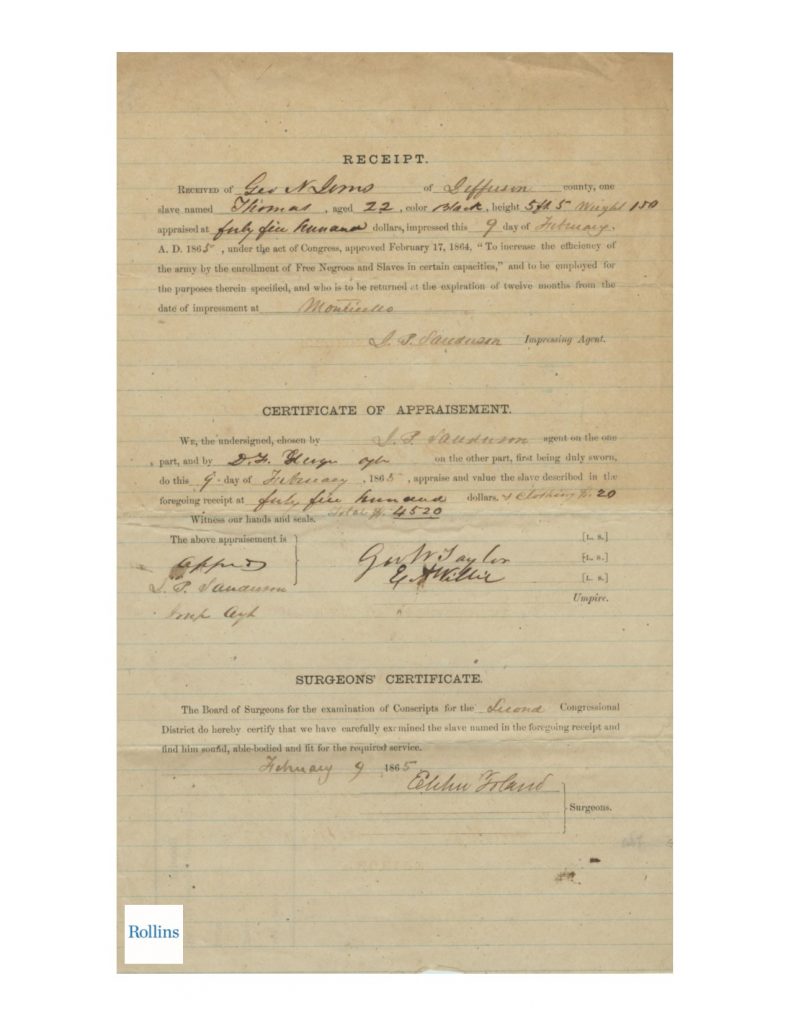 RECEIPT.
RECEIVED of Geo N of Jefferson county, one
slave named Thomas, aged 22, color Black, height 5 ft 5 Weight 150
appraised at forty five hundred dollars, impressed this 9 day of February.
A. D. 1865, under the act of Congress, approved February 17, 1864, "To increase the efficiency of
the army by the enrollment of Free Negroes and Slaves in certain capacities," and to be employed for
the purposes therein specified, and who is to be returned at the expiration of twelve months from the
date of impressment at Monticello
Impressing Agent.
CERTIFICATE OF APPRAISEMENT.
WE, the undersigned, chosen by agent on the one
part, and by on the other part, first being duly sworn,
do this 9 day of February, 1865, appraise and value the slave described in the
foregoing receipt at forty five hundred dollars. & Clothing $. 20
Witness our hands and seals. Total $. 4520
The above appraisement is
[L. S.]
Geo W Taylor [L. S.]
[L. S.]
Umpire.
SURGEONS' CERTIFICATE.
The Board of Surgeons for the examination of Conscripts for the Second Congressional
District do hereby certify that we have carefully examined the slave named in the foregoing receipt and
find him sound, able-bodied and fit for the required service.
February 9, 1865
Surgeons.
Rollins